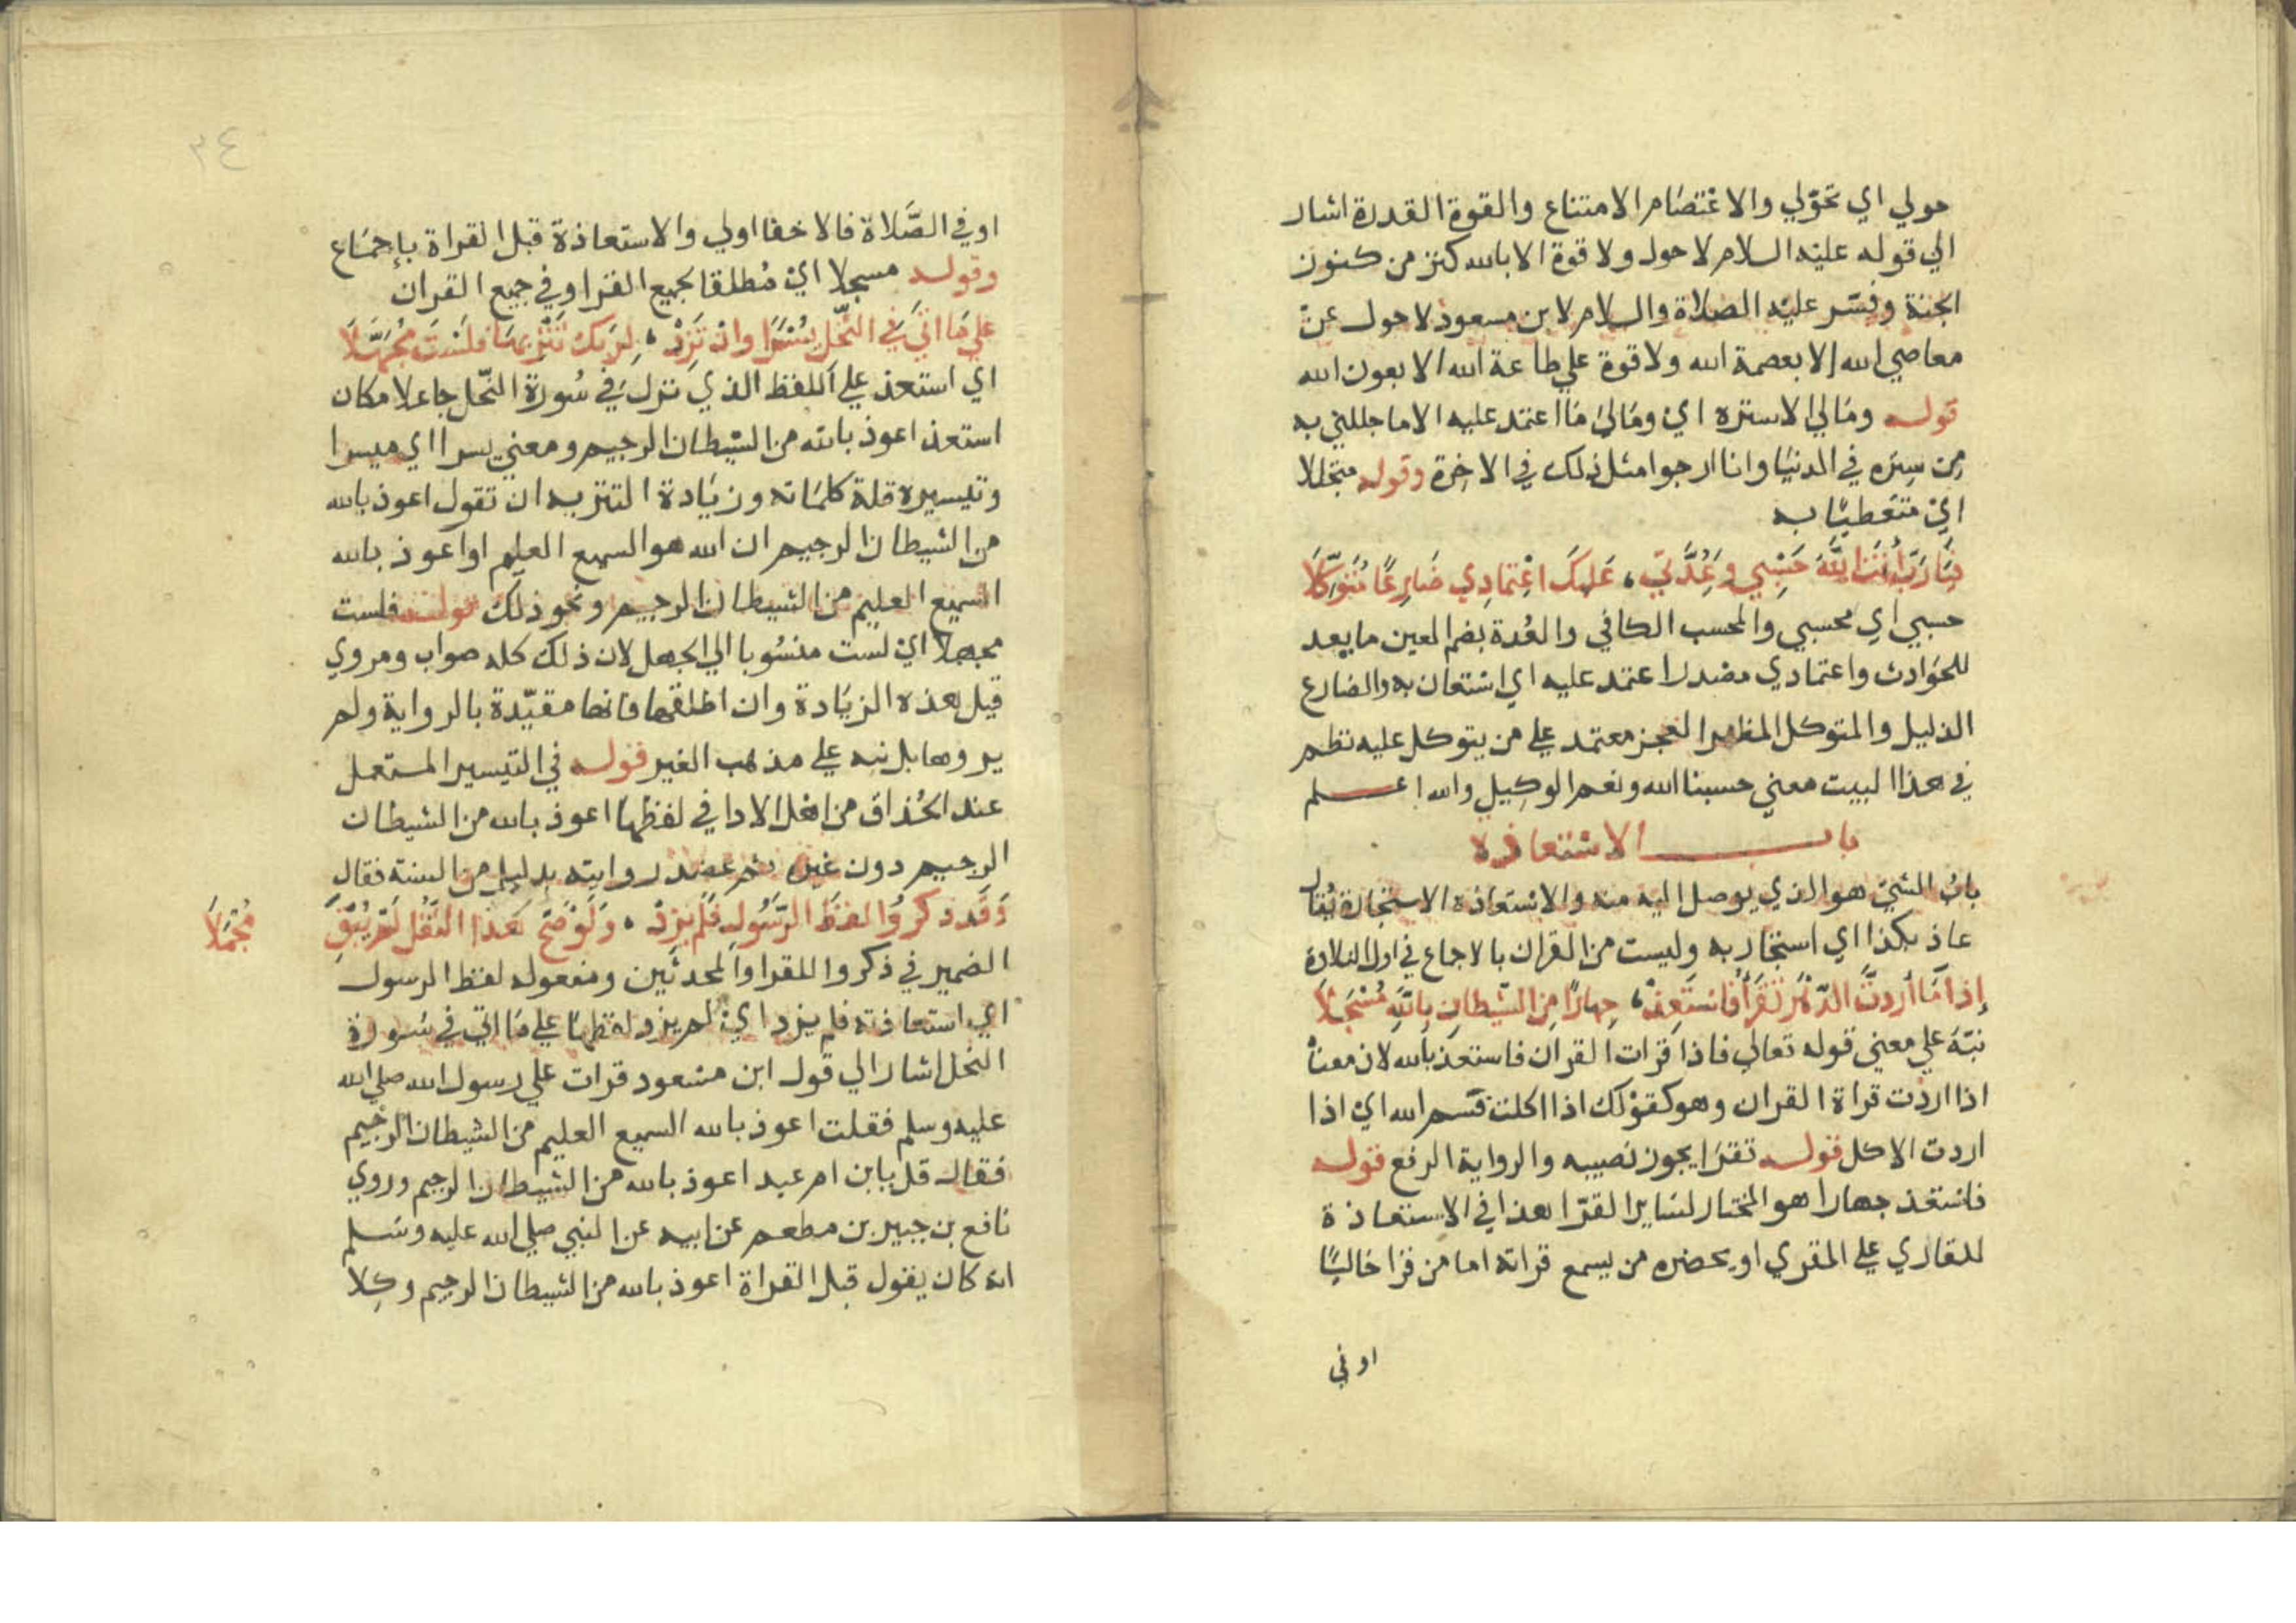 حولي اي تحوّلي والاعْتصَام الامتناع والقوة القدرة اشار
الي قوله عليْه السلام لا حول ولا قوة الا بالله كنز من كنوز
الجنة وفسّر عليْه الصلاة والسلام لابن مسعود لا حول عن
معاصي الله الا بعصمة الله ولا قوة علي طاعة الله الا بعون الله
قوله ومَالي الا ستره اي ومَالي مَا اعتمد عليه الا ما جللني به
مِن سِتره في الدنيَا وانا ارجوا مثل ذلك في الاخِرة وقوله متجللا
ايْ متغطيًا به
فيَا رَبِّ أنتَ اللَّهُ حَسْبِي وَعُدَّتِي، عَليكَ اعْتِمادِي ضَارِعًا مُتَوكِّلَا
حسبي اي محسبي والمحسب الكافي والعُدة بضم العين ما يعد
للحَوادث واعتمادي مصْدر اعتمد عليه اي استعان به والضارع
الذليل والمتوكل المظهر العجز معتمد علي من يتوكل عليه نظم
في هذا البيت معني حسبنا الله ونعم الوكيل والله اعلم
باب الاسْتعاذة
بابُ الشيْ هو الذي يوصل اليه منه والاسْتعاذة الاستجارة يُقال
عاذ بكذا اي استجار به وليست من القران بالاجماع في اول التلاوة
إذا مَا أردتَ الدّهْرَ تَقرَأُ فَاسْتَعِذْ، جِهارًا مِنَ الشّيطانِ بِاللَّهِ مُسْجَلَا
نبّهَ علي معني قوله تعالي فاذا قرَات القران فاستعذ بالله لان معناه
اذا اردْت قراة القران وهو كقوْلك اذا اكلت فسم الله ايْ اذا
اردت الاكل قوله تقرَا يجوز نصبه والرواية الرفع قوله
فاستعذ جهارا هو المختار لسَاير القرّا هذا في الاستعاذة
للقاري علي المقري او بحضره من يسمع قراته اما من قرَا خاليًا
او في
٣٤
او في الصَّلاة فالاخفا اولي والاستعاذة قبل القراة بإجمَاع
وقوله مسجلا ايْ مُطلقا لجميع القرا وفي جميع القران
علَي مَا اتَي فِي النّحْلِ يُسْرًا وان تَزِدْ، لِرَبّكَ تَنْزِيهًا فلَسْتَ مُجَهَّلَا
اي استعذ علي اللفظ الذي نزل في سُورة النّحل جاعلا مكان
استعذ اعوذ بالله من الشيطان الرجيم ومعني يسرا اي ميسرا
وتيسيره قلة كلمَاته وزيَادة التنزيه ان تقول اعوذ بالله
من الشيطان الرجيم ان الله هو السميع العليم او اعوذ بالله
السميع العليم من الشيطان الرجيم ونحو ذلك قوله فلست
مجهلا ايْ لست منسُوبا الي الجهل لان ذلك كله صواب ومروي
قيل هذه الزيَادة وان اطلقها فانها مقيّدة بالرواية ولم
يروها بل نبه علي مذهب الغير قوله في التيسير المستعمل
عند الحُذاق من اهْل الادا في لفظهَا اعوذ بالله من الشيطان
الرجيم دون غيره ثم عضد روايته بدليل من السنة فقال
وَقَد ذكرُوا لفظَ الرَّسُولِ فَلَم يَزِدْ، وَلَوْ صَحَّ هَذا النّقْلُ لَمْ يُبْقِ
مُجْمَلَا
الضمير في ذكروا للقرا والمحدثين ومفعوله لفظ الرسول
اي استعاذته فلم يزد ايْ لم يزد لفظهَا علي مَا اتي في سُورة
النحل اشار الي قول ابن مسْعود قرات علي رسول الله صلي الله
عليه وسلم فقلت اعوذ بالله السميع العليم من الشيطان الرجيم
فقال قل يا بن ام عبد اعوذ بالله من الشيطان الرجيم وروي
نافع بن جبير بن مطعم عن ابيه عن النبي صلي الله عليه وسَلم
انه كان يقول قبل القراة اعوذ بالله من الشيطان الرجيم وكِلا